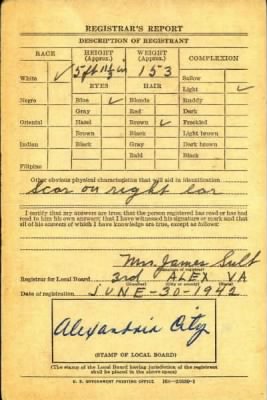 REGISTRAR'S REPORT
DESCRIPTION OF REGISTRANT
RACE HEIGHT (Approx.) WEIGHT (Approx.) COMPLEXION
White ✓ 5 ft 11½ in 153 Sallow
EYES HAIR Light ✓
Negro Blue ✓ Blonde Ruddy
Gray Red Dark
Oriental Hazel Brown ✓ Freckled
Brown Black Light brown
Indian Black Gray Dark brown
Bald Black
Filipino
Other obvious physical characteristics that will aid in identification
Scar on right ear
I certify that my answers are true; that the person registered has read or has had
read to him his own answers; that I have witnessed his signature or mark and that
all of his answers of which I have knowledge are true, except as follows:
Mrs. James Sult
Registrar for Local Board 3rd ALEX VA
Date of registration JUNE-30-1942
Alexandria City
(STAMP OF LOCAL BOARD)
(The stamp of the Local Board having jurisdiction of the registrant
shall be placed in the above space)
U. S. GOVERNMENT PRINTING OFFICE